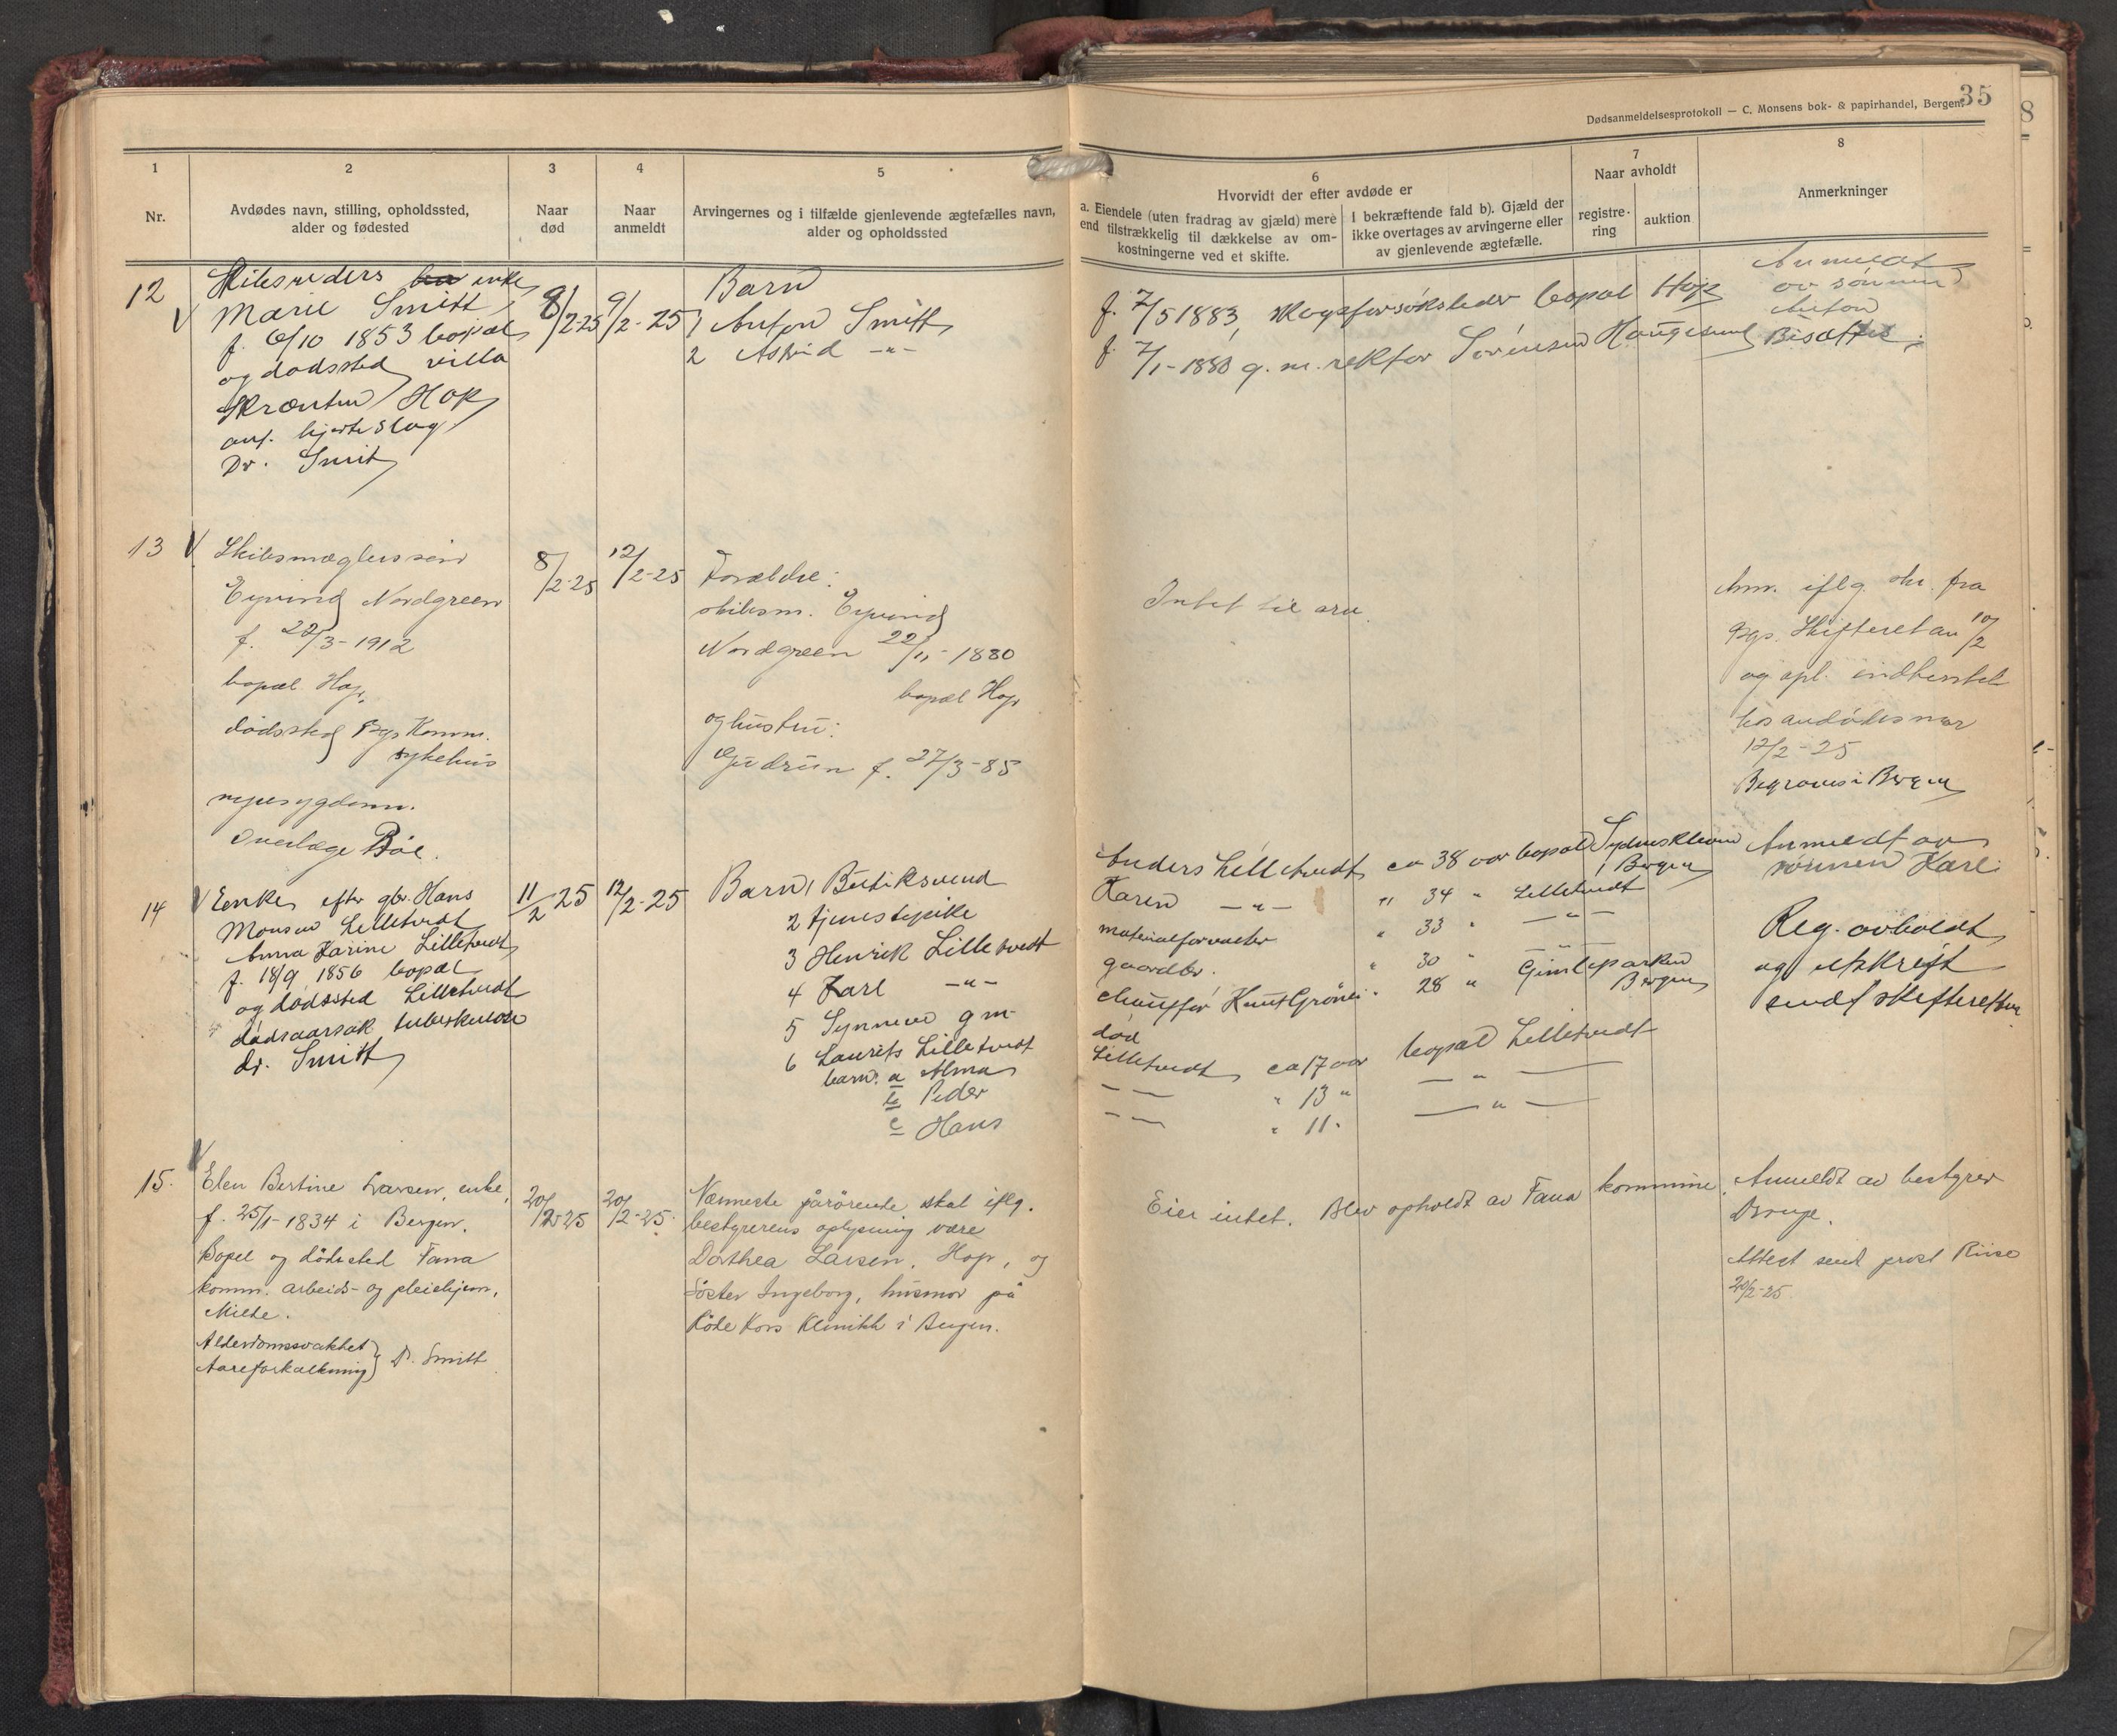 35
Dødsanmeldelsesprotokoll — C. Monsens bok- & papirhandel, Bergen.
8
1
Nr.
2
Avdødes navn, stilling, opholdssted,
alder og fødested
3
Naar
død
4
Naar
anmeldt
5
Arvingernes og i tilfælde gjenlevende ægtefælles navn,
alder og opholdssted
6
Hvorvidt der efter avdøde er
a. Eiendele (uten fradrag av gjæld) mere
end tilstrækkelig til dækkelse av om-
kostningerne ved et skifte.
I bekræftende fald b). Gjæld der
ikke overtages av arvingerne eller
av gjenlevende ægtefælle.
7
Naar avholdt
registre-
ring
auktion
8
Anmerkninger
12
Skibsreders enke
Marie Smitt
f. 6/10 1853 bopæl
og dødssted villa
Skrænten Hop
anf. hjerteslag
Dr. Smit
8/2-25
9/2-25
Barn
1 Anton Smitt
2 Astrid -"-
f. 7/5 1883, skogforsøksleder bopæl Hop
f. 7/1-1880 g. m. rektor Sørensen Haugesund
Anmeldt
av sønnen
Anton
Bisættes
13
Skibsmæglersøn
Eyvind Nordgreen
f. 22/3-1912
bopæl Hop,
dødssted Bgs Komm.
sykehus
nyresygdom.
Overlæge Bøe.
8/2-25
12/2-25
Forældre:
skibsm. Eyvind
Nordgreen 22/11-1880
bopæl Hop
og hustru:
Gudrun f. 27/3-85
Intet til arv.
Anm. iflg. skr. fra
Bgs. Skifteret av 10/2
og opl. indhentet
hos avdødes mor
12/2-25
Begraves i Bergen
14
Enke efter gbr. Hans
Monsen Lilletvedt
Anna Karine Lilletvedt
f. 18/9 1856 bopæl
og dødssted Lilletvedt
dødsaarsak tuberkulose
dr. Smitt
11/2 25
12/2-25
Barn 1 Butiksvend
2 tjenestepike
3 Henrik Lilletvedt
4 Karl -"-
5 Synneve g m
6 Laurits Lilletvedt
barn: a Alma
b Peder
c Hans
Anders Lilletvedt ca 38 aar bopæl Sydneskleven
i Bergen
Karen -"- " 34 " Lilletvedt
materialforvalter " 33 " -"-
gaardbr. " 30 " -"-
chauffør Knut Grønei " 28 " Gimleparken
Bergen
død
Lilletvedt ca 17 aar bopæl Lilletvedt
-- " 13 " -"-
-- " 11 " -"-
Anmeldt av
sønnen Karl
Reg. avholdt
og utskrift
sendt skifteretten
15.
Elen Bertine Larsen, enke,
f. 25/1-1834 i Bergen.
Bopel og dödssted Fana
komm. arbeids- og pleiehjem,
Milde.
Alderdomssvakhet
Aareforkalkning } Dr. Smitt
20/2-25
20/2-25.
Nærmeste pårörende skal iflg.
bestyrerens oplysning være
Dorthea Larsen, Hop, og
Söster Ingeborg, husmor på
Röde Kors Klinikk i Bergen.
Eier intet. Blev opholdt av Fana kommune.
Anmeldt av bestyrer
Drange.
Attest sendt prost Riise
20/2-25